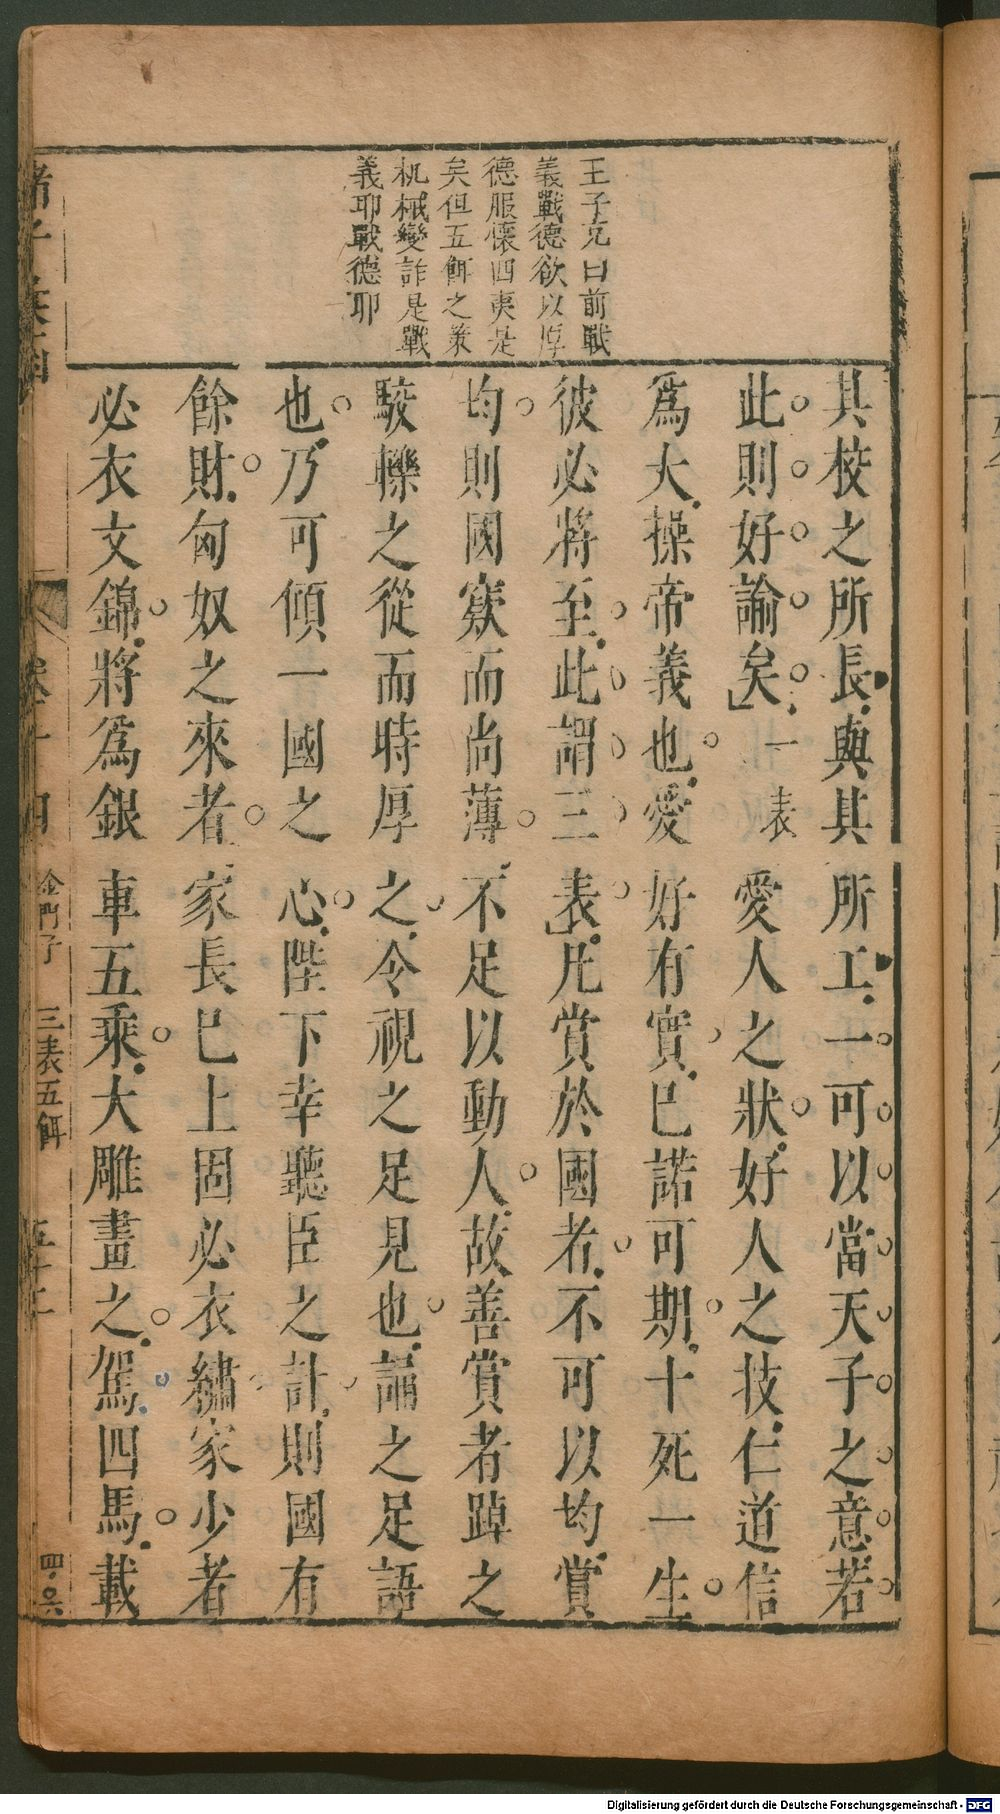 王子充曰前戰
義戰德欲以厚
德服懷四夷是
矣但五餌之策
机械變詐是戰
義耶戰德耶
其校之所長與其所工一可以當天子之意若
此則好諭矣一表愛人之狀好人之技仁道信
爲大操帝義也愛好有實巳諾可期十死一生
彼必將至此謂三表凡賞於國者不可以均賞
均則國窾而尚薄不足以動人故善賞者踔之
駮轢之從而時厚之令視之足見也誦之足語
也乃可傾一國之心陛下幸聽臣之計則國有
餘財匈奴之來者家長巳上固必衣繡家少者
必衣文錦將爲銀車五乘大雕畫之駕四馬載
諸子
卷十四
金門子
三表五餌
五十二
Digitalisierung gefördert durch die Deutsche Forschungsgemeinschaft - DFG